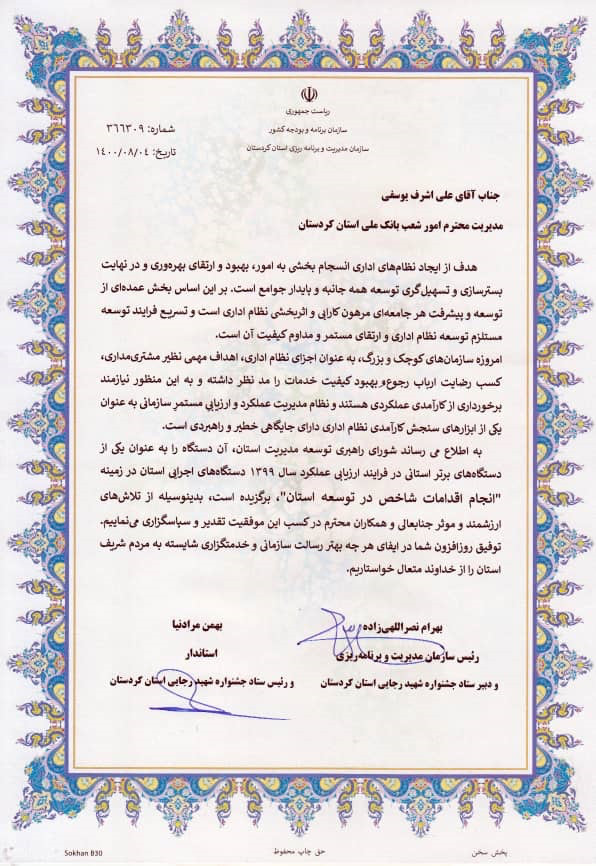 ریاست جمهوری
سازمان برنامه و بودجه کشور
سازمان مدیریت و برنامه ریزی استان کردستان
شماره: ۳۶۶۳۰۹
تاریخ: ۱۴۰۰/۰۸/۰۴
جناب آقای علی اشرف یوسفی
مدیریت محترم امور شعب بانک ملی استان کردستان
هدف از ایجاد نظام‌های اداری انسجام بخشی به امور، بهبود و ارتقای بهره‌وری و در نهایت
بسترسازی و تسهیل‌گری توسعه همه جانبه و پایدار جوامع است. بر این اساس بخش عمده‌ای از
توسعه و پیشرفت هر جامعه‌ای مرهون کارایی و اثربخشی نظام اداری است و تسریع فرایند توسعه
مستلزم توسعه نظام اداری و ارتقای مستمر و مداوم کیفیت آن است.
امروزه سازمان‌های کوچک و بزرگ، به عنوان اجزای نظام اداری، اهداف مهمی نظیر مشتری‌مداری،
کسب رضایت ارباب رجوع و بهبود کیفیت خدمات را مد نظر داشته و به این منظور نیازمند
برخورداری از کارآمدی عملکردی هستند و نظام مدیریت عملکرد و ارزیابی مستمر سازمانی به عنوان
یکی از ابزارهای سنجش کارآمدی نظام اداری دارای جایگاهی خطیر و راهبردی است.
به اطلاع می رساند شورای راهبری توسعه مدیریت استان، آن دستگاه را به عنوان یکی از
دستگاه‌های برتر استانی در فرایند ارزیابی عملکرد سال ۱۳۹۹ دستگاه‌های اجرایی استان در زمینه
"انجام اقدامات شاخص در توسعه استان"، برگزیده است، بدینوسیله از تلاش‌های
ارزشمند و موثر جنابعالی و همکاران محترم در کسب این موفقیت تقدیر و سپاسگزاری می‌نماییم.
توفیق روزافزون شما در ایفای هر چه بهتر رسالت سازمانی و خدمتگزاری شایسته به مردم شریف
استان را از خداوند متعال خواستاریم.
بهرام نصراللهی‌زاده
رئیس سازمان مدیریت و برنامه‌ریزی
و دبیر ستاد جشنواره شهید رجایی استان کردستان
بهمن مرادنیا
استاندار
و رئیس ستاد جشنواره شهید رجایی استان کردستان
پخش سخن
حق چاپ محفوظ
Sokhan B30